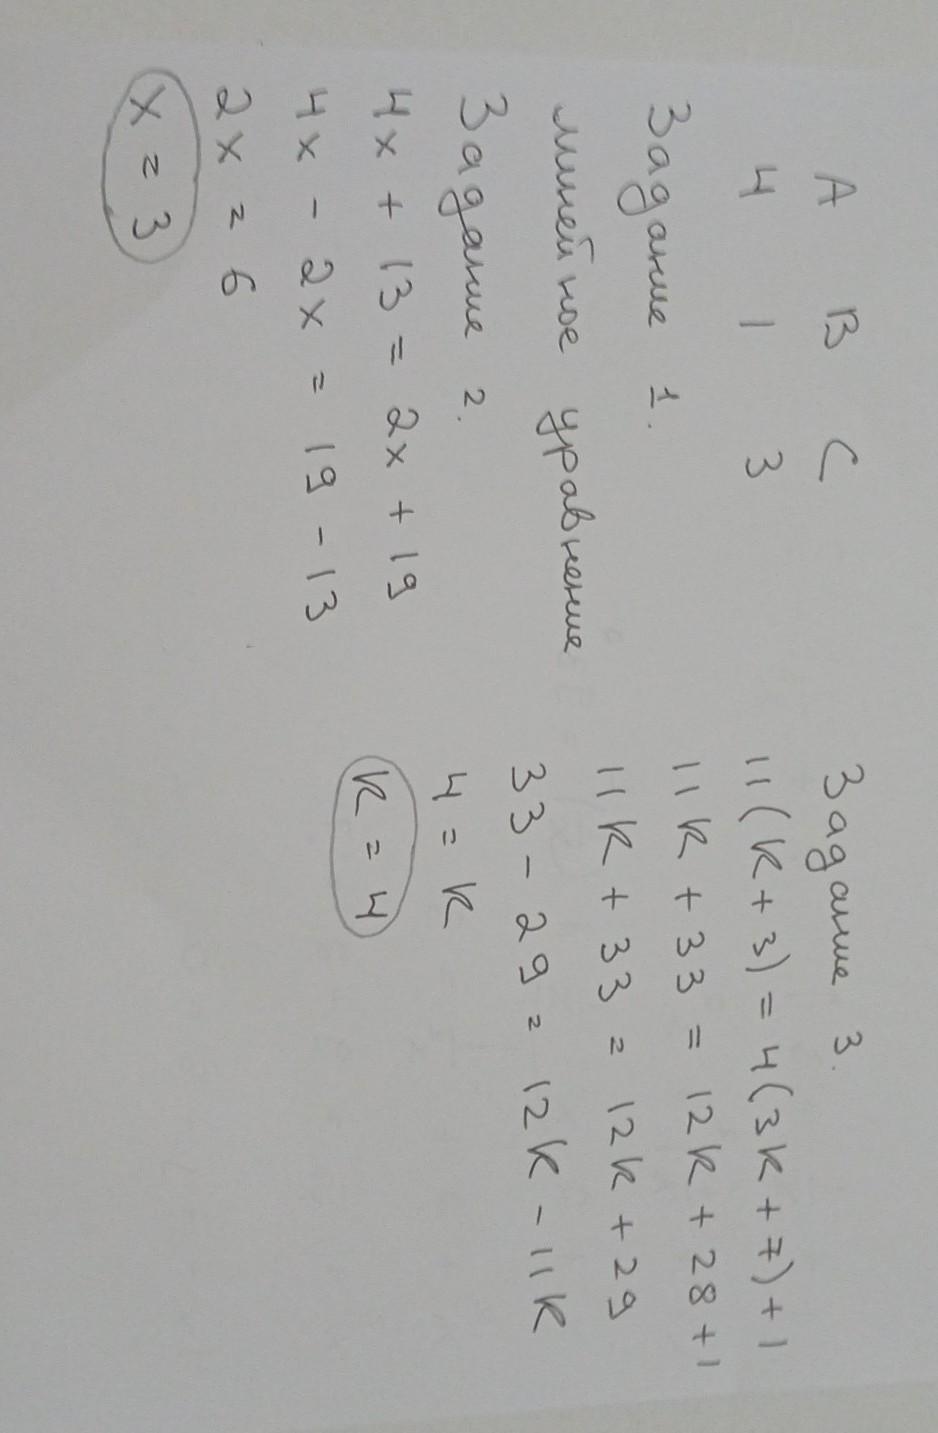 A B C
4 1 3
Задание 1.
линейное уравнение
Задание 2.
4x + 13 = 2x + 19
4x - 2x = 19 - 13
2x = 6
x = 3
Задание 3.
11(k + 3) = 4(3k + 7) + 1
11k + 33 = 12k + 28 + 1
11k + 33 = 12k + 29
33 - 29 = 12k - 11k
4 = k
k = 4